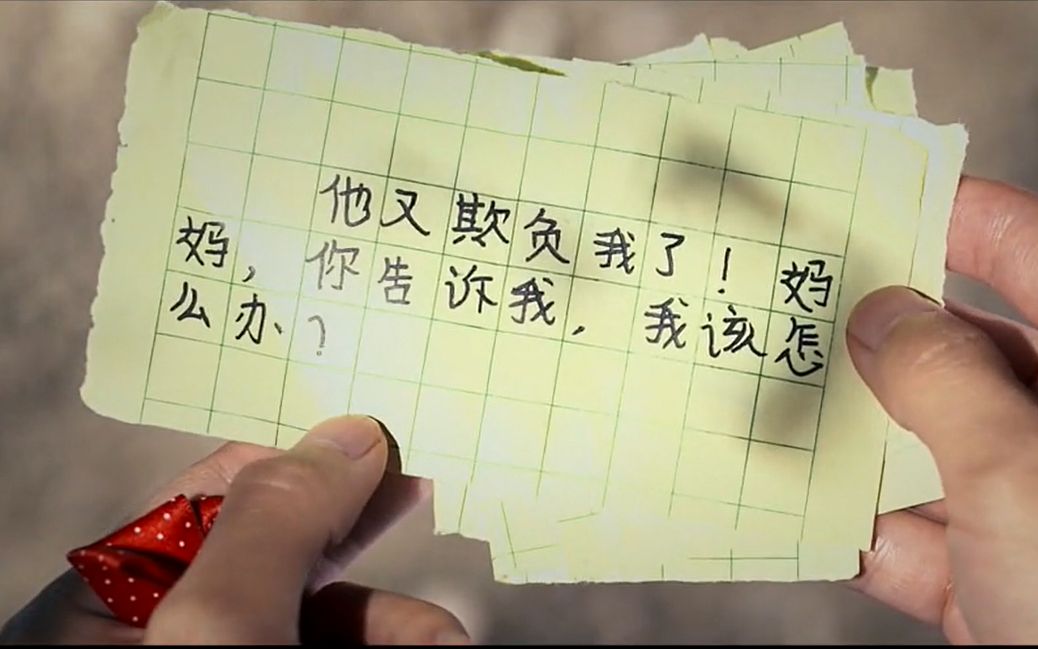 他又欺负我了！妈
妈，你告诉我，我该怎
么办？